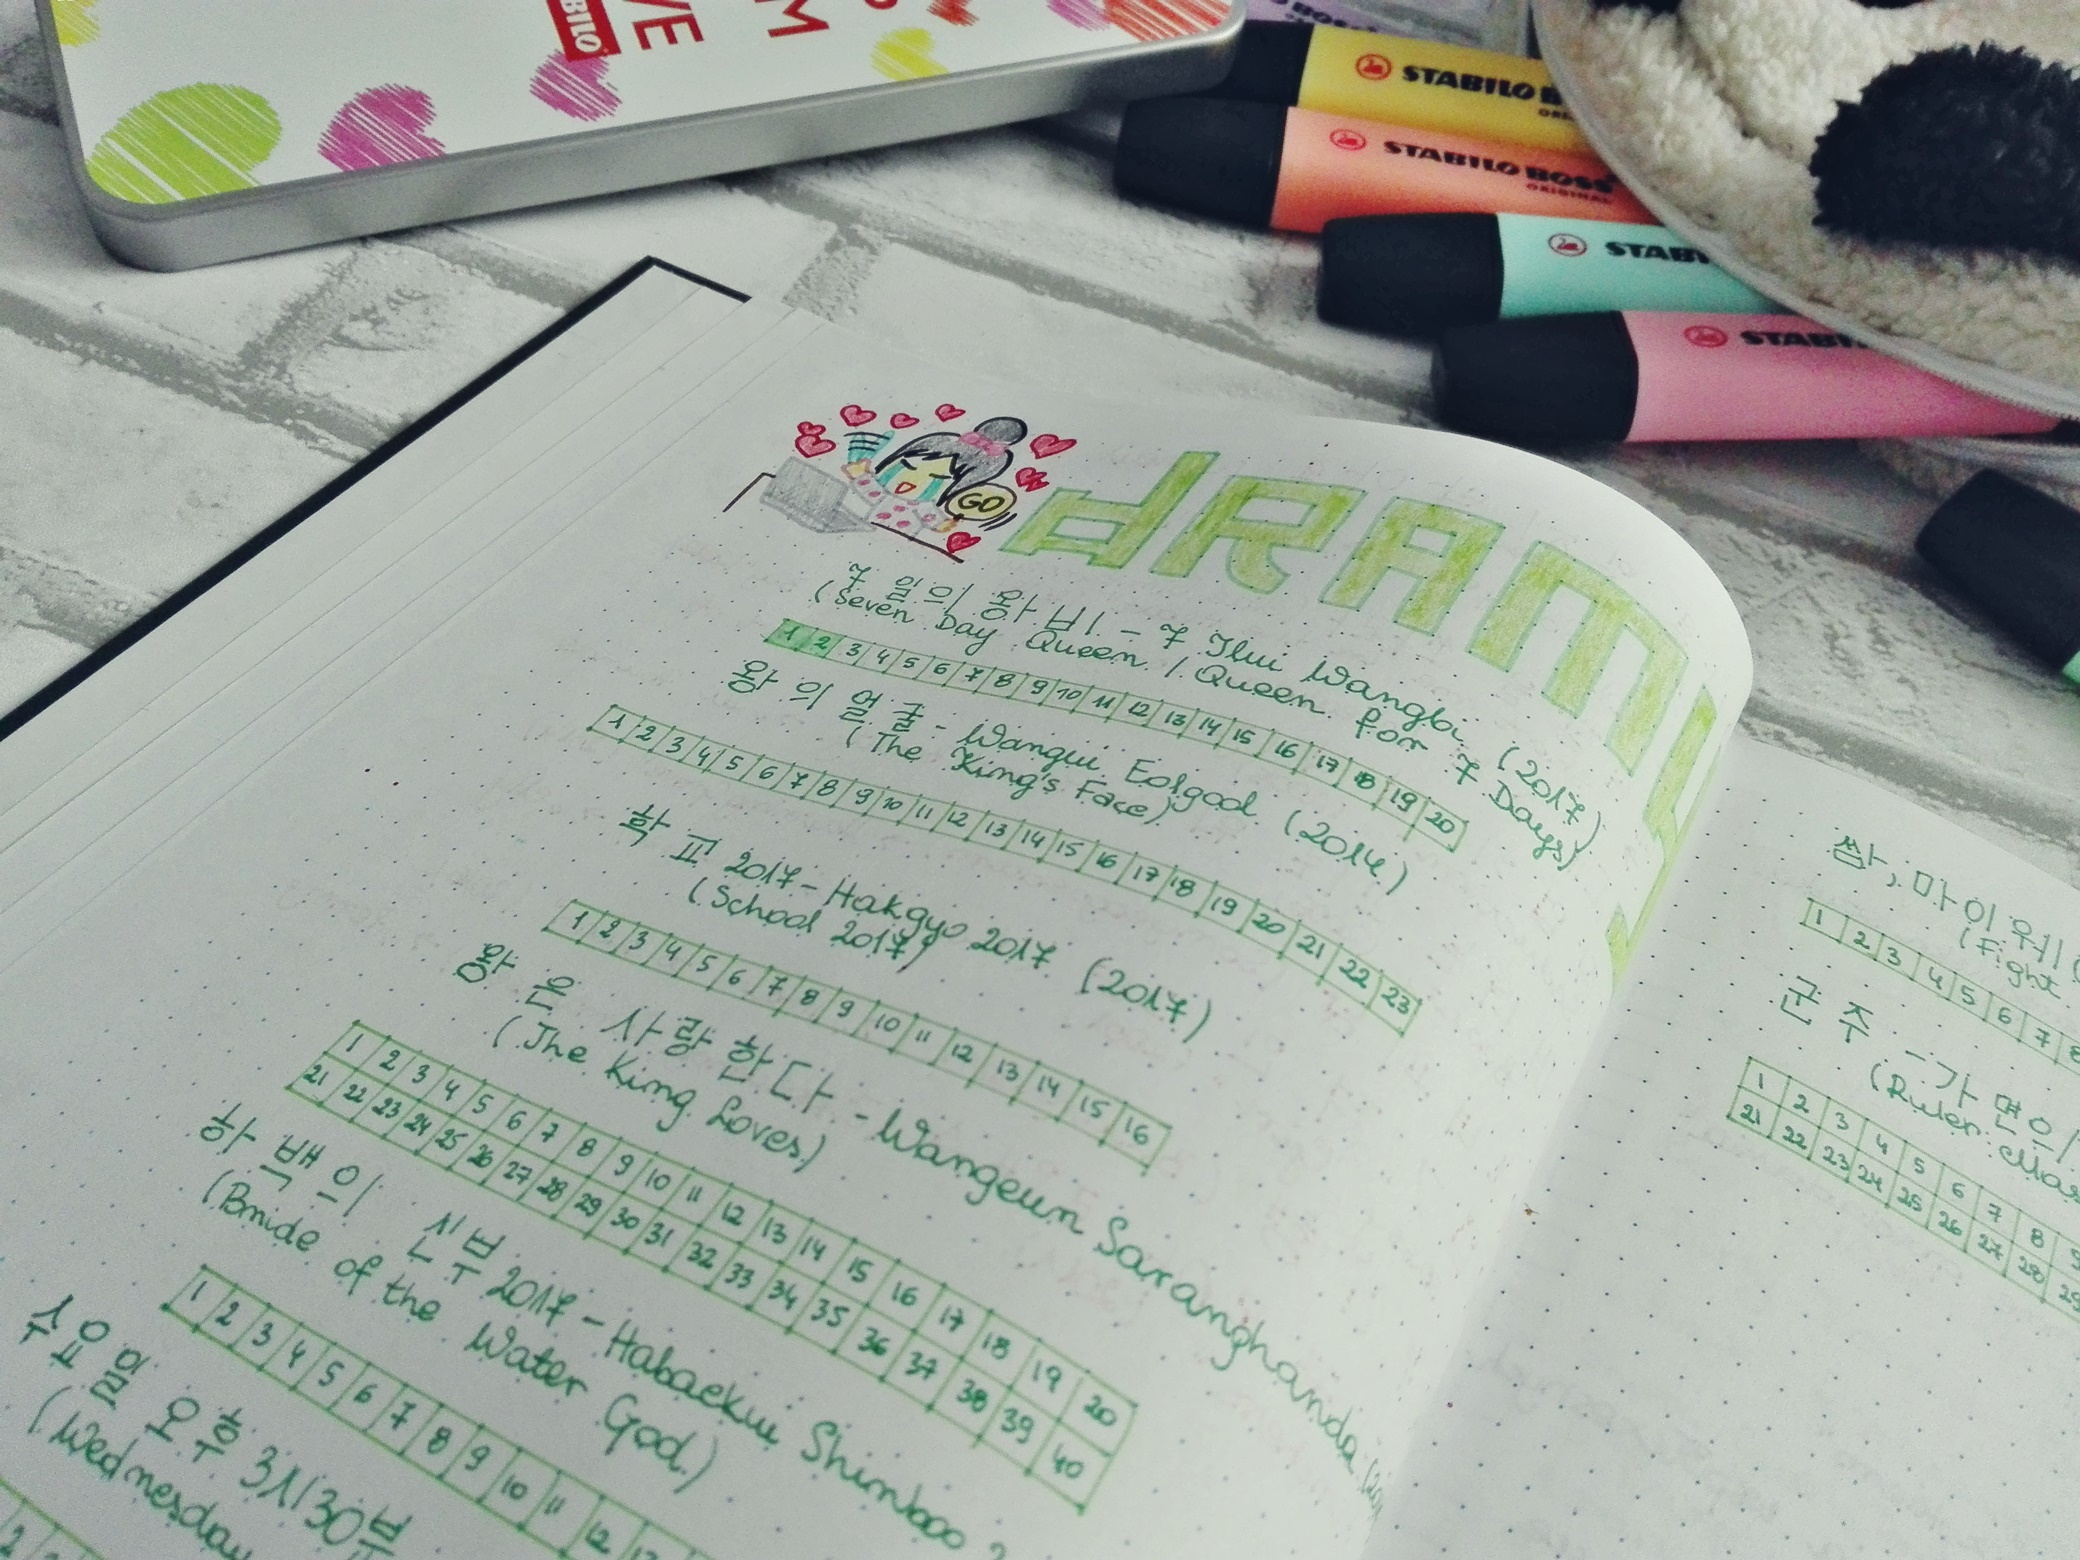 STABILO BOSS
ORIGINAL
STABILO BOSS
ORIGINAL
GO
dRAMY
7 일의 왕비 - 7 Ilui Wangbi (2017)
(Seven Day Queen / Queen for 7 Days)
1 2 3 4 5 6 7 8 9 10 11 12 13 14 15 16 17 18 19 20
왕의 얼굴 - Wangui Eolgool (2014)
(The King's Face)
1 2 3 4 5 6 7 8 9 10 11 12 13 14 15 16 17 18 19 20 21 22 23
학교 2017 - Hakgyo 2017 (2017)
(School 2017)
1 2 3 4 5 6 7 8 9 10 11 12 13 14 15 16
왕은 사랑한다 - Wangeun Saranghanda (20
(The King Loves)
1 2 3 4 5 6 7 8 9 10 11 12 13 14 15 16 17 18 19 20
21 22 23 24 25 26 27 28 29 30 31 32 33 34 35 36 37 38 39 40
하백의 신부 2017 - Habaekui Shinboo 2
(Bride of the Water God)
1 2 3 4 5 6 7 8 9 10 11 12
수요일 오후 3시 30분
(Wednesday
쌈, 마이웨이 (
(Fight
1 2 3 4 5 6 7 8
군주 - 가면의
(Ruler: Mas
1 2 3 4 5 6 7 8 9
21 22 23 24 25 26 27 28 29